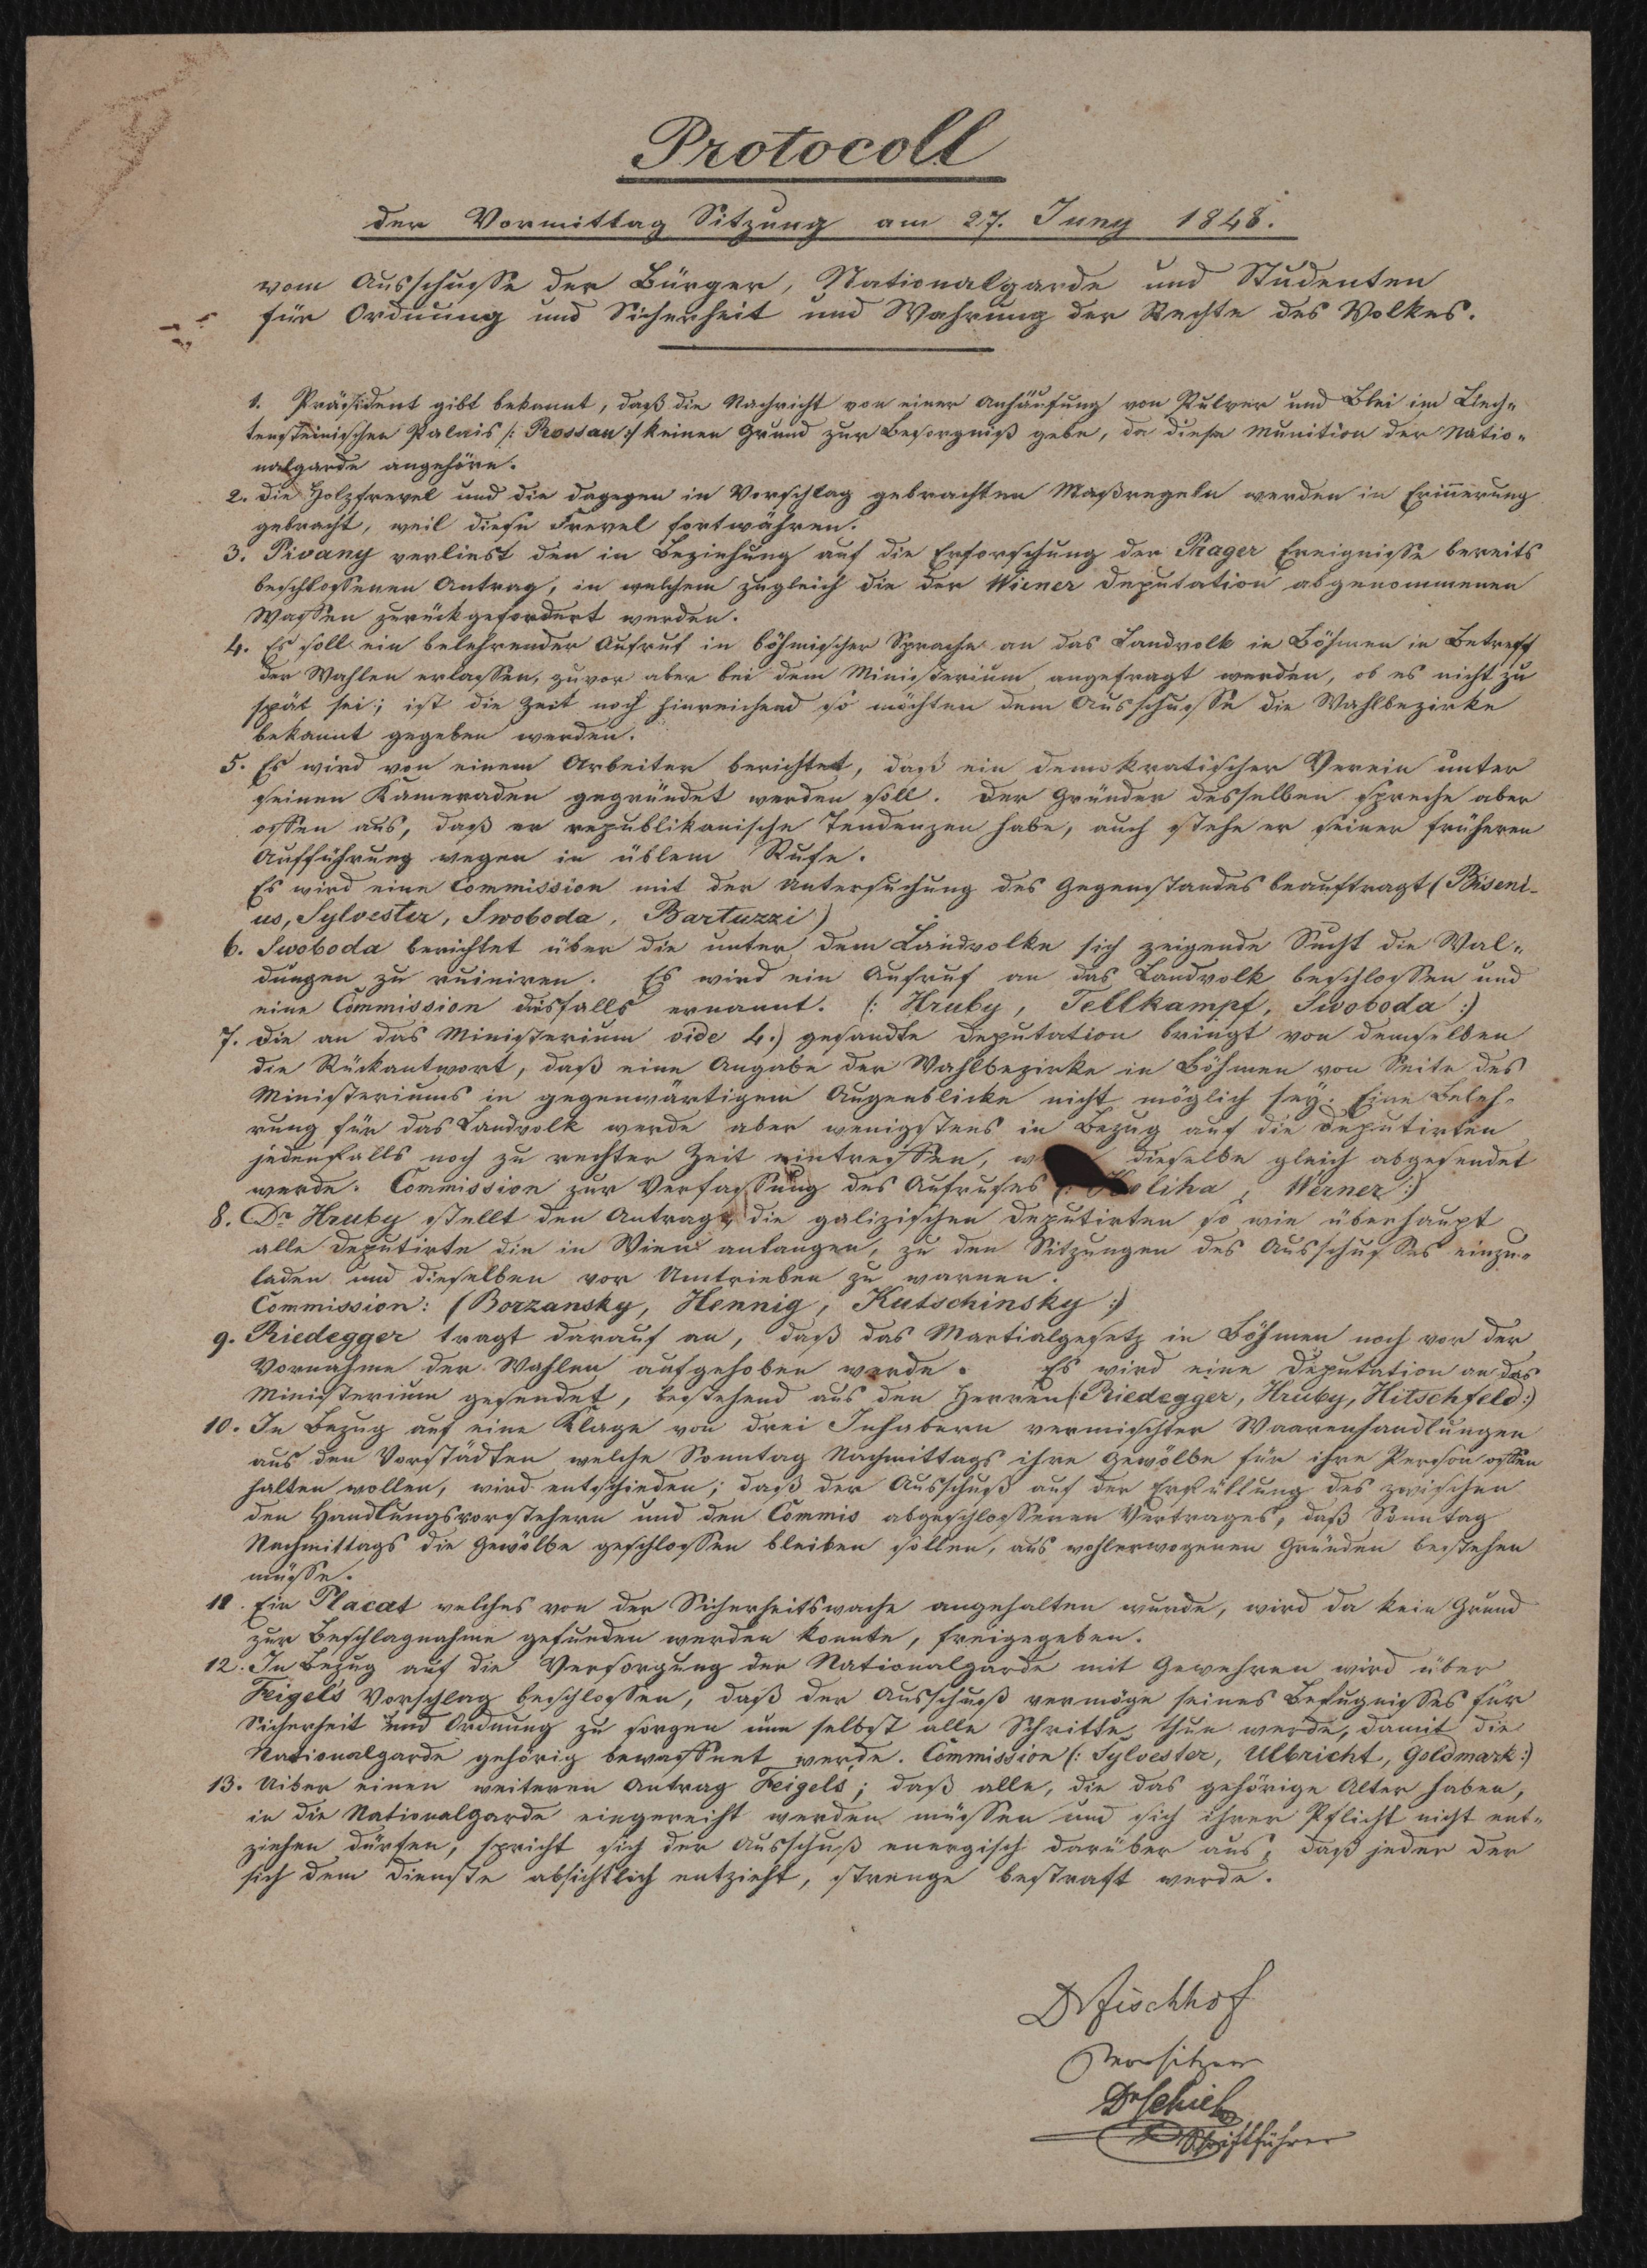 Protocoll
der Vormittag Sitzung am 27. Juny 1848.
vom Ausschusse der Bürger, Nationalgarde und Studenten
für Ordnung und Sicherheit und Wahrung der Rechte des Volkes.
1. Präsident gibt bekannt, daß die Nachricht von einer Anhäufung von Pulver und Blei im Liech-
tensteinischen Palais /: Rossau :/ keinen Grund zur Besorgniß gebe, da diese Munition der Natio-
nalgarde angehöre.
2. Die Holzfrevel und die dagegen in Vorschlag gebrachten Maßregeln werden in Erinnerung
gebracht, weil diese Frevel fortwähren.
3. Pivany verliest den in Beziehung auf die Erforschung der Prager Ereignisse bereits
beschlossenen Antrag, in welchem zugleich die der Wiener Deputation abgenommenen
Waffen zurückgefordert werden.
4. Es soll ein belehrender Aufruf in böhmischer Sprache an das Landvolk in Böhmen in Betreff
der Wahlen erlassen, zuvor aber bei dem Ministerium angefragt werden, ob es nicht zu
spät sei; ist die Zeit noch hinreichend so möchten dem Ausschusse die Wahlbezirke
bekannt gegeben werden.
5. Es wird von einem Arbeiter berichtet, daß ein demokratischer Verein unter
seinen Kameraden gegründet werden soll. Der Gründer desselben spreche aber
offen aus, daß er republikanische Tendenzen habe, auch stehe er seiner früheren
Aufführung wegen in üblem Rufe.
Es wird eine Commission mit der Untersuchung des Gegenstandes beauftragt (Biseni-
us, Sylvester, Swoboda, Bartuzzi)
6. Swoboda berichtet über die unter dem Landvolke sich zeigende Sucht die Wal-
dungen zu ruiniren. Es wird ein Aufruf an das Landvolk beschlossen und
eine Commission diesfalls ernannt. (: Hruby, Tellkampf, Swoboda :)
7. Die an das Ministerium vide 4.) gesandte Deputation bringt von demselben
die Rückantwort, daß eine Angabe der Wahlbezirke in Böhmen von Seite des
Ministeriums in gegenwärtigem Augenblicke nicht möglich sey. Eine Beleh-
rung für das Landvolk werde aber wenigstens in Bezug auf die Deputirten
jedenfalls noch zu rechter Zeit eintreffen, dieselbe gleich abgesendet
werde. Commission zur Verfassung des Aufrufes Werner :)
8. Dr Hruby stellt den Antrag, die galizischen Deputirten so wie überhaupt
alle Deputirte die in Wien anlangen, zu den Sitzungen des Ausschusses einzu-
laden und dieselben vor Umtrieben zu warnen.
Commission: (Borzansky, Hennig, Kutschinsky :)
9. Riedegger tragt darauf an, daß das Martialgesetz in Böhmen noch vor der
Vornahme der Wahlen aufgehoben werde. Es wird eine Deputation an das
Ministerium gesendet, bestehend aus den Herren (: Riedegger, Hruby, Hitschfeld :)
10. In Bezug auf eine Klage von drei Inhabern vermischter Waarenhandlungen
aus den Vorstädten welche Sonntag Nachmittags ihre Gewölbe für ihre Person offen
halten wollen, wird entschieden; daß der Ausschuß auf der Erfüllung des zwischen
den Handlungsvorstehern und den Commis abgeschlossenen Vertrages, daß Sonntag
Nachmittags die Gewölbe geschlossen bleiben sollen, aus wohlerwogenen Gründen bestehen
müsse.
11. Ein Placat welches von der Sicherheitswache angehalten wurde, wird da kein Grund
zur Beschlagnahme gefunden werden konnte, freigegeben.
12. In Bezug auf die Versorgung der Nationalgarde mit Gewehren wird über
Feigel's Vorschlag beschlossen, daß der Ausschuß vermöge seines Befugnisses für
Sicherheit und Ordnung zu sorgen nun selbst alle Schritte thun werde, damit die
Nationalgarde gehörig bewaffnet werde. Commission (: Sylvester, Ulbricht, Goldmark :)
13. Uiber einen weiteren Antrag Feigels; daß alle, die das gehörige Alter haben,
in die Nationalgarde eingereiht werden müssen und sich ihrer Pflicht nicht ent-
ziehen dürfen, spricht sich der Ausschuß energisch darüber aus, daß jeder der
sich dem Dienste absichtlich entzieht, strenge bestraft werde.
Dr Fischhof
Vorsitzer
Dr Schiel
Schriftführer